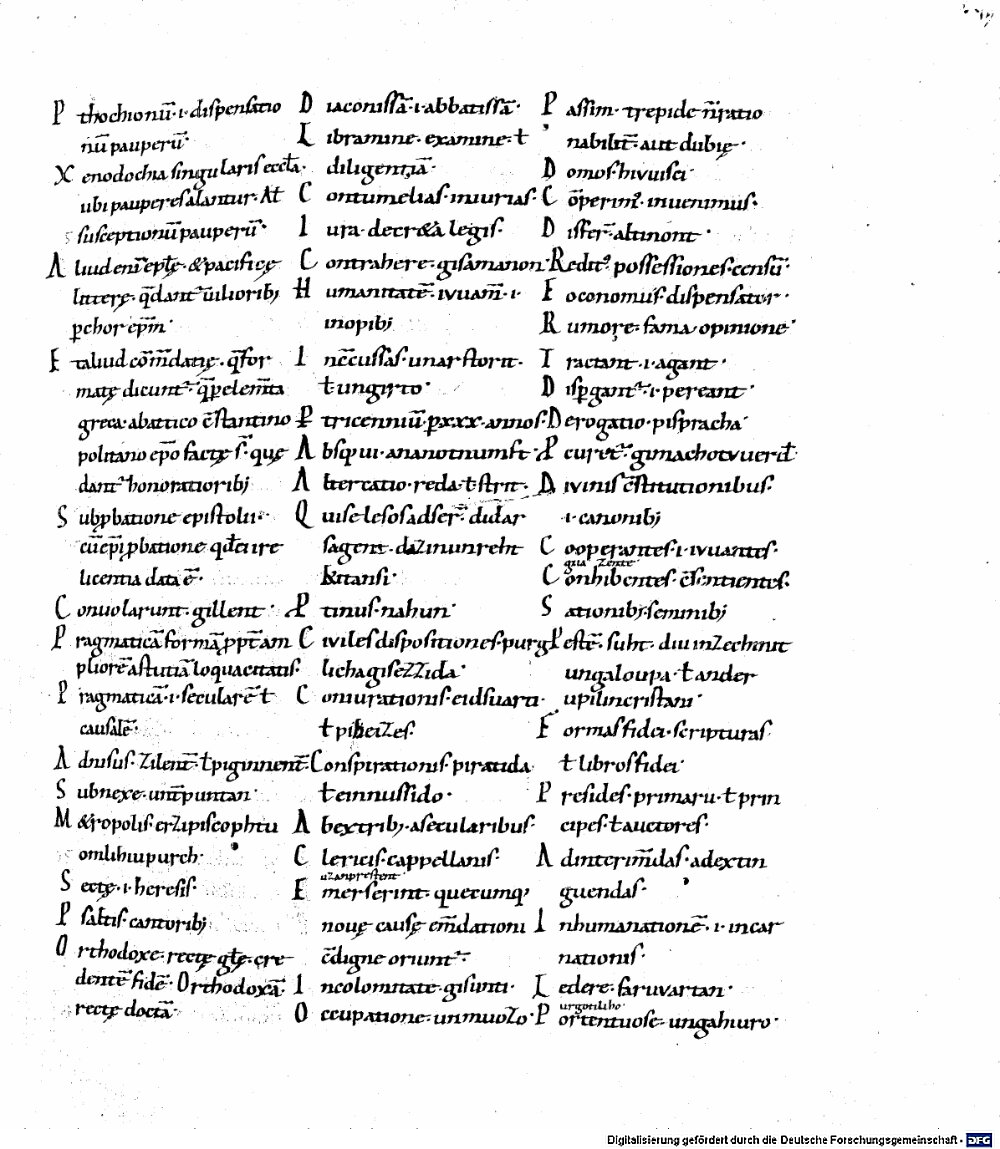 Pthochionū·i·dispensatio
nū pauperū·
Xenodochia singularis eccƚ·
ubi pauperes aluntur· Aƚ
susceptionū pauperū·
Aliud enī epƚę·&pacificę
litterę· qđ dant᷑ uilioribꝫ
ꝑchorepm̄·
Et aliud cōm̄datię· q̄ for
matę dicunt᷑· q̄ ꝑ elem̄ta
greca· ab attico c̄stantino
politano ep̄o factę s̄· quę
dant᷑ honoratioribꝫ
Sub ꝓbatione epistolii·
cū ep̄i ꝓbatione qđ ei ire
licentia data ē·
Conuolarunt· gillent·
Pragmaticā formā ꝓpt̄ am
pliorē astutiā loquacitatis·
Pragmaticā·i·secularē ƚ
causalē·
Adnisus· zilent̄· ƚ piginnent̄·
Subnexe· unt̄puntan·
M&ropolis· erzipiscophtu
omlihiu purch·
Sectę·i·heresis·
Psaltis· cantoribꝫ
Orthodoxe· rectę gƚę· cre
dentē fidē· Orthodoxā
rectę doctā·
Diaconissā·i·abbatissā·
Libramine· examine· ƚ
diligentiā·
Contumelias· iniurias·
Iura· decr&a legis·
Contrahere· gisamanon·
Humanitatē· ivuam̄·i·
inopibꝫ
Inc̄cussas· unarstorit·
ƚ ungirto·
Ptricenniū· ꝑ xxx· annos·
Absq; ui· ana notnumft·
Altercatio· reda· ƚ strit·
Quise lesos adser᷑· didar
sagent· dazin unreht
kitansi·
Ptinus· nahun·
Ciuiles dispositiones· purg
lichagisezzida·
Coniurationis· eidsuarti·
ƚ pibeizes·
Conspirationis· piratida
ƚ einnussido·
Ab extribꝫ· a secularibus·
Clericis· cappellanis·
uzanprestent
Emerserint· quecumq;
nouę causę em̄dationi
c̄digne oriunt᷑·
Incolomitate· gisunti·
Occupatione· unmuozo·
Passim· trepide n̄ ratio
nabilit̄· aut dubię·
Domos· hivuisci·
Cōperim᷒· inuenimus·
Differ᷑· altinont·
Redit᷒ possessiones· censū·
Foconomus· dispensator·
Rumorę· fama opinione·
Tractant·i·agant·
Dispgant᷑·i·pereant·
Derogatio· pispracha·
Pcuret᷑· gimachot vuerđ·
Diuinis c̄stitutionibus·
i·canonibꝫ
Cooperantes·i·ivuantes·
gua zente
Conhibentes· c̄sentientes·
Sationibꝫ· seminibꝫ
Pestē· suht· diu inzechinit
ungaloupa· ƚ ander
upilincristani·
Formas fidei· scripturas·
ƚ libros fidei·
Presides· primaru· ƚ prin
cipes· ƚ auctores·
Ad interim̄das· ad extin
guendas·
Inhumanationē·i·incar
nationis·
Ledere· faruvartan·
urgotiliho
Portentuose· ungahiuro·
Digitalisierung gefördert durch die Deutsche Forschungsgemeinschaft - DFG